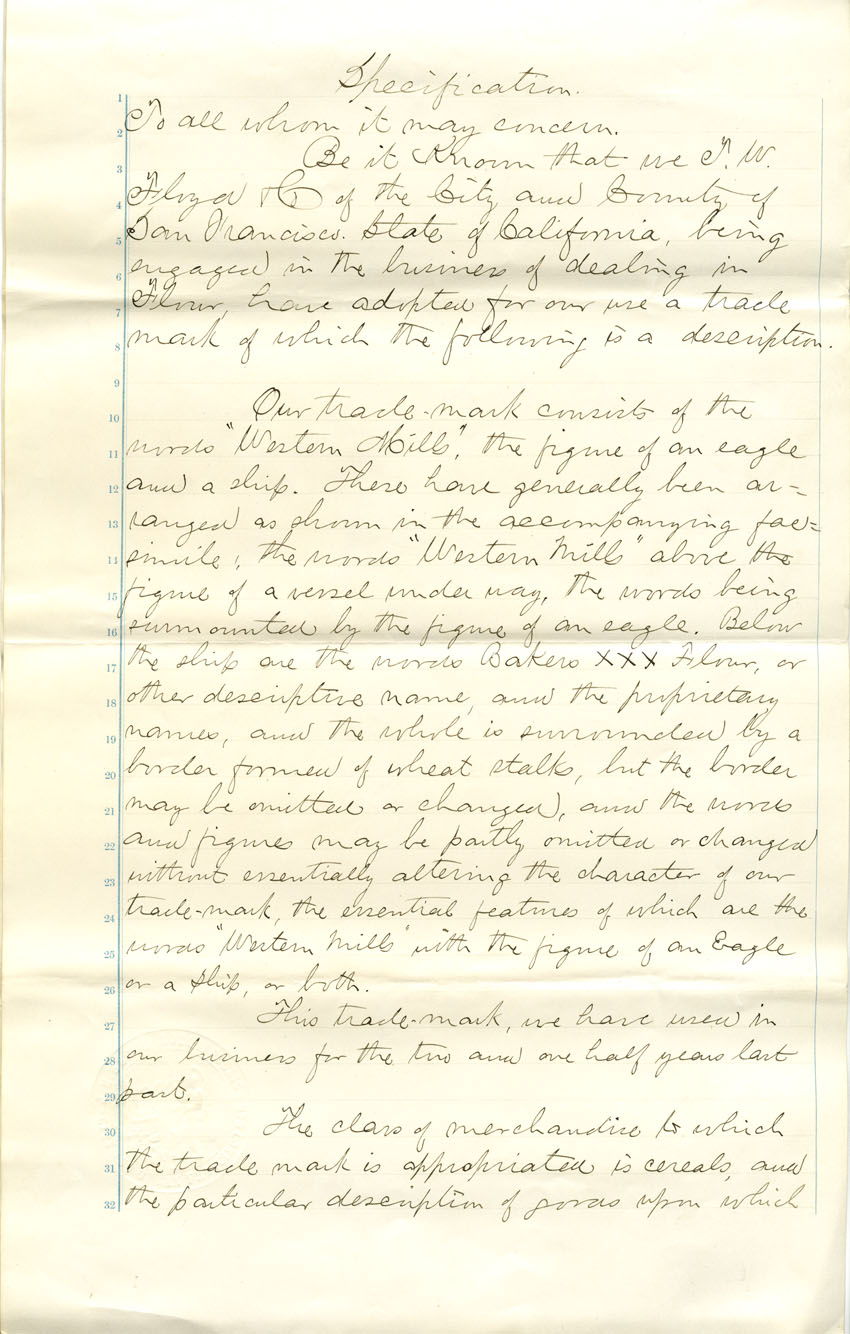 Specification.
1
To all whom it may concern.
2
Be it Known that we T. W.
3
Floyd & Co of the City and County of
4
San Francisco. State of California, being
5
engaged in the business of dealing in
6
Flour, have adopted for our use a trade
7
mark of which the following is a description.
8
9
Our trade-mark consists of the
10
words "Western Mills", the figure of an eagle
11
and a ship. These have generally been ar=
12
ranged as shown in the accompanying fac=
13
simile; the words "Western Mills" above the
14
figure of a vessel under way, the words being
15
surmounted by the figure of an eagle. Below
16
the ship are the words Bakers XXX Flour, or
17
other descriptive name, and the proprietary
18
names, and the whole is surrounded by a
19
border formed of wheat stalks, but the border
20
may be omitted or changed, and the words
21
and figures may be partly omitted or changed
22
without essentially altering the character of our
23
trade-mark, the essential features of which are the
24
words "Western Mills" with the figure of an Eagle
25
or a Ship, or both.
26
This trade-mark, we have used in
27
our business for the two and one half years last
28
past.
29
The class of merchandise to which
30
the trade mark is appropriated is cereals, and
31
the particular description of goods upon which
32